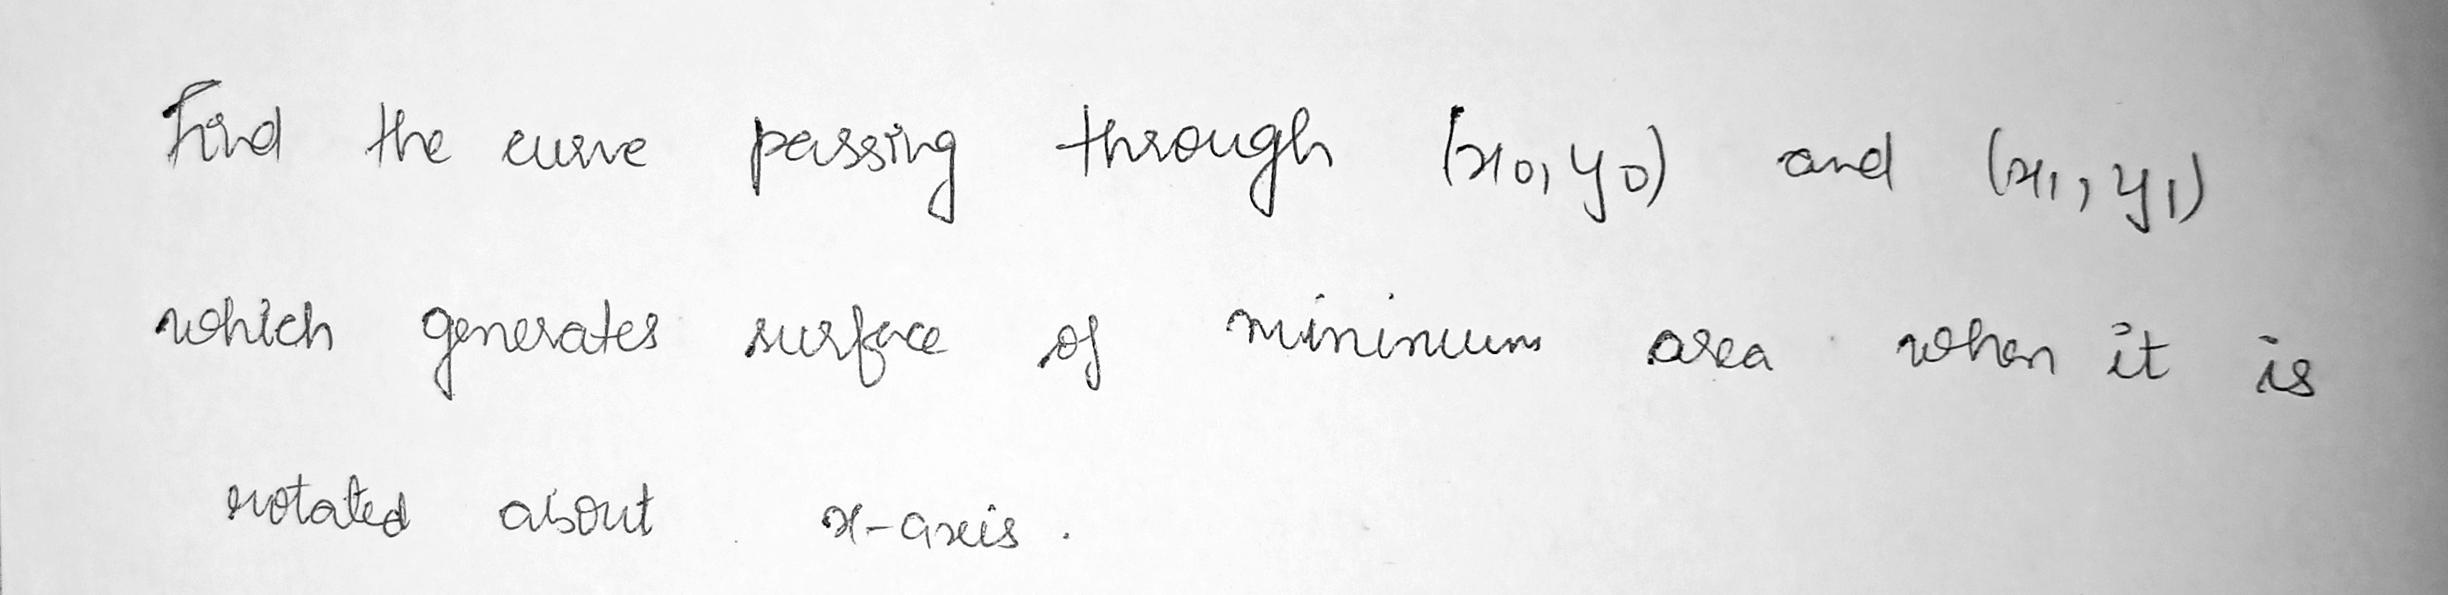 Find the curve passing through (x0, y0) and (x1, y1)
which generates surface of minimum area when it is
rotated about x-axis.